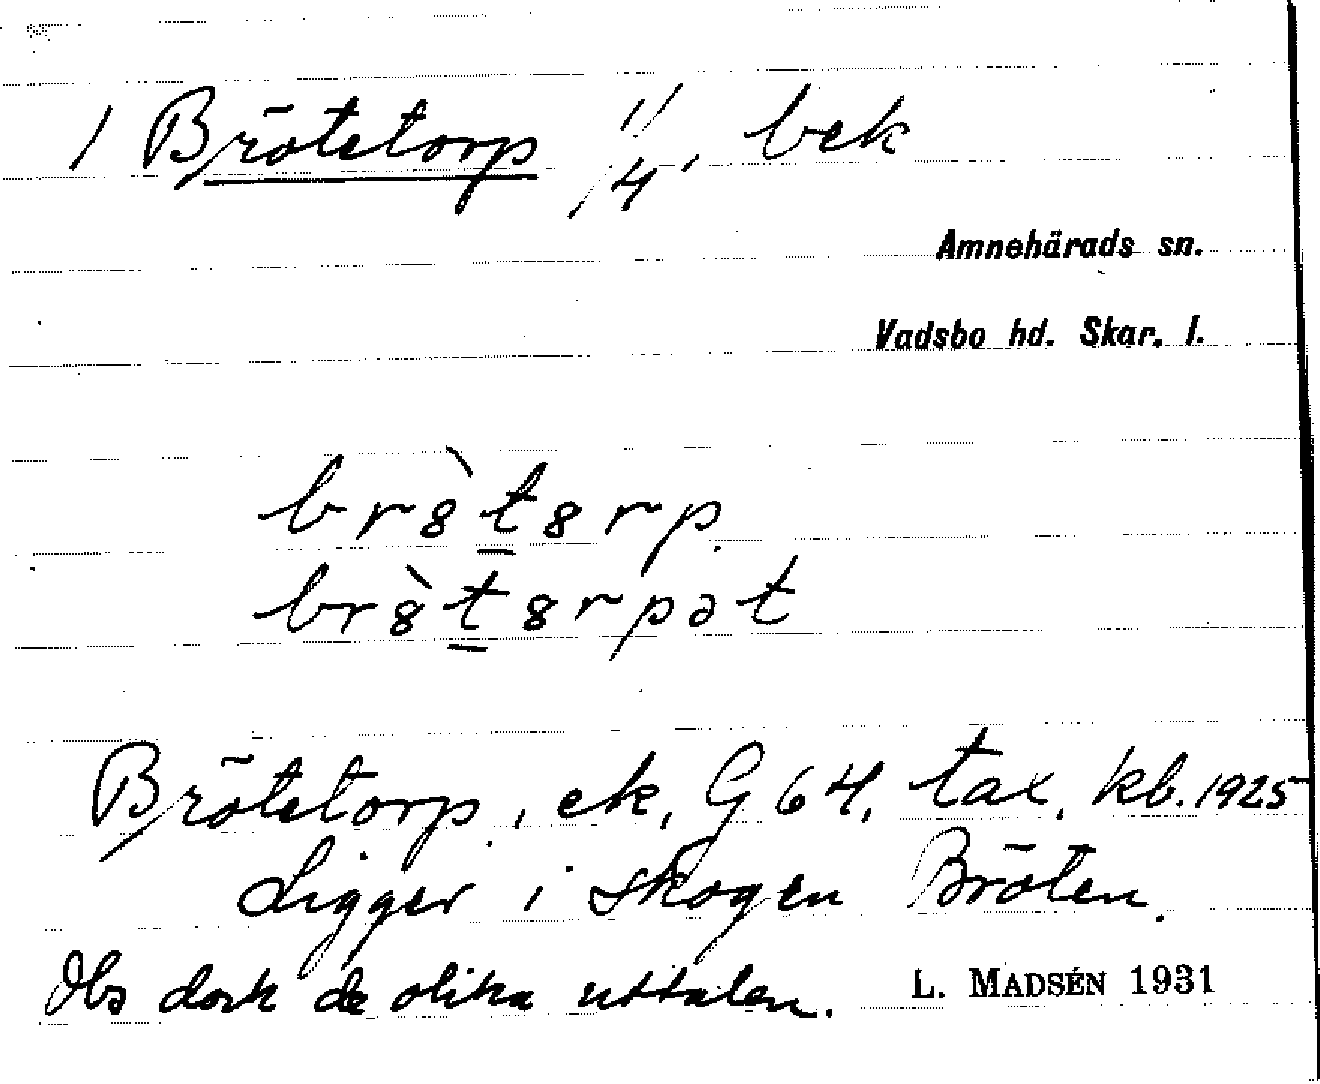 1 Brötetorp 1/1 1/4, bek
Amnehärads sn.
Vadsbo hd. Skar. l.
br8̀t8rp.
br8̀t8rpət
Brötetorp, ek, G 64, tax. kb. 1925
Ligger i skogen Bröten.
Obs dock de olika uttalen. L. MADSÉN 1931